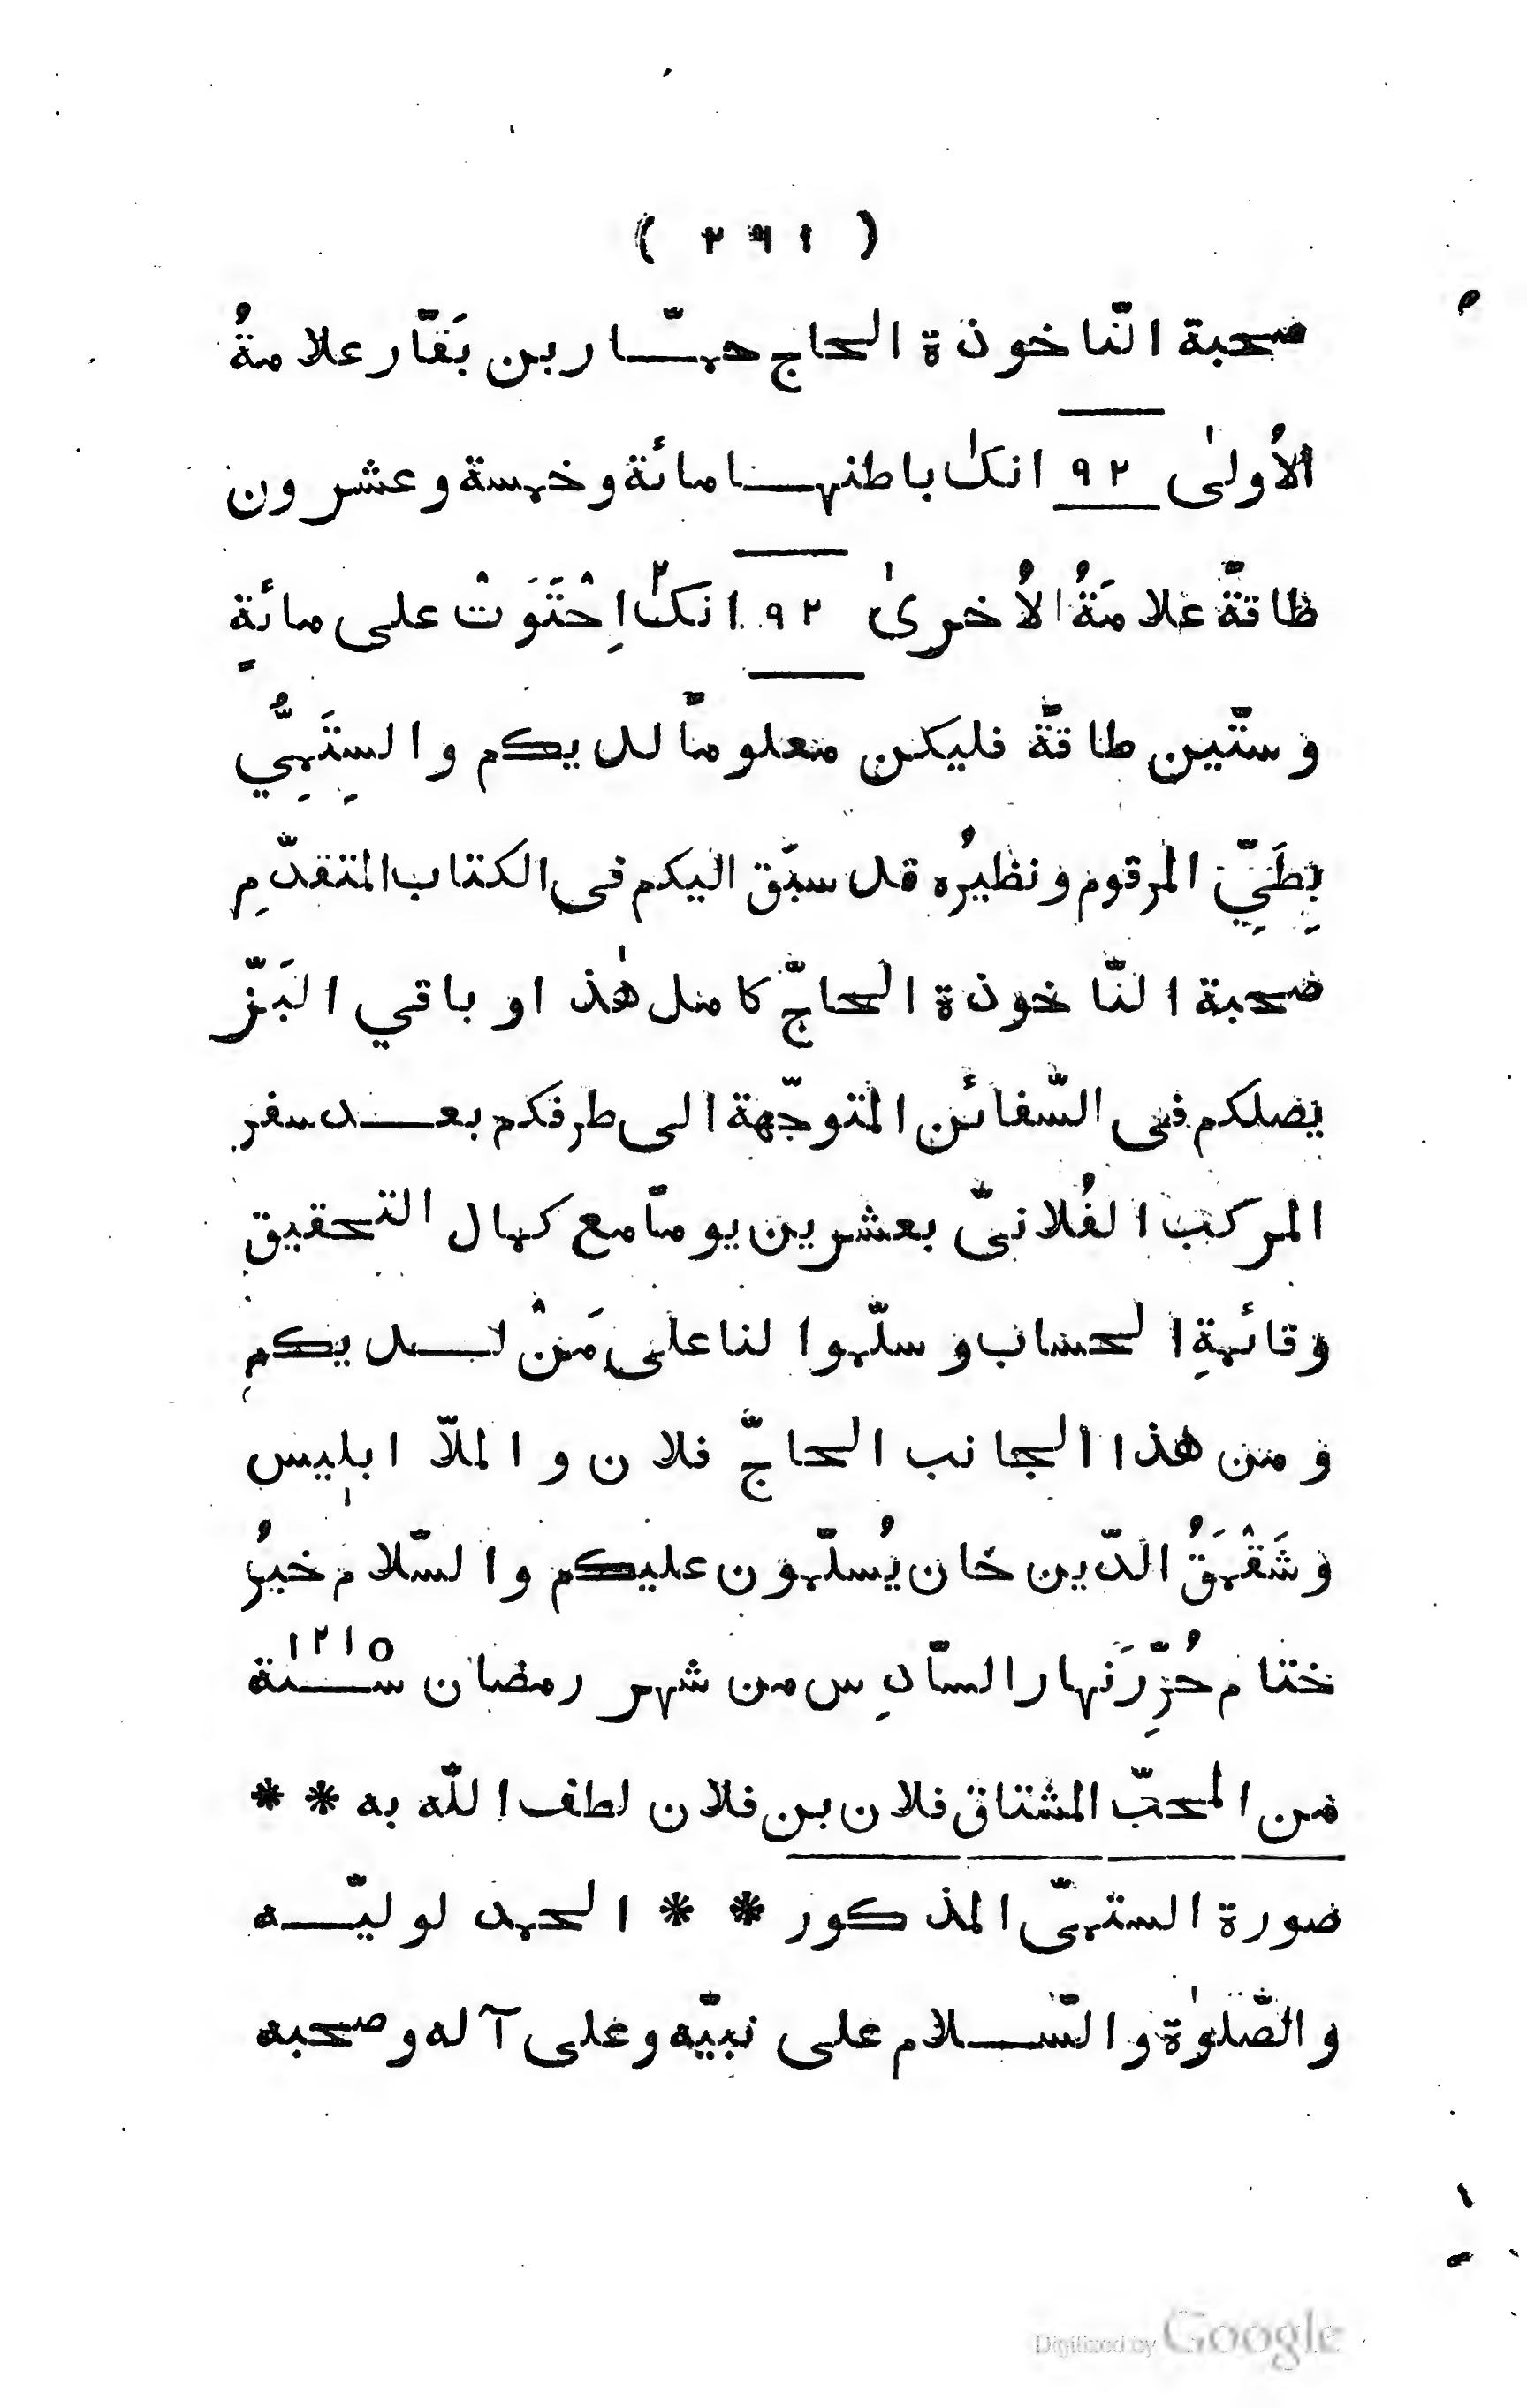 ( ٢٩١ )
صحبة النّاخوذة الحاج حمّار بن بَقّار علامةُ
الأولىٰ ٩٢ انكـ١ باطنها مائة وخمسة وعشرون
طاقةً علامَةُ الأُخرىٰ ٩٢ انكـ٢ اِحْتَوَتْ على مائةٍ
وستّين طاقةً فليكن معلوماً لديكم والسِتَمِيُّ
بِطَيِّ المرقوم ونظيرُه قد سبَق اليكم فى الكتاب المتقدّمِ
صحبة النّاخوذة الحاجّ كامل هٰذا وباقي البَزّ
يصلكم فى السّفائن المتوجّهة الى طرفكم بعد سفر
المركب الفُلانىّ بعشرين يوماً مع كمال التحقيق
وقائمةِ الحساب وسلّموا لنا على مَنْ لديكم
ومن هذا الجانب الحاجّ فلان والملّا ابليس
وشَقْمَقُ الدّين خان يُسلّمون عليكم والسّلام خيرُ
ختام حُرِّرَ نهار السّادِس من شهر رمضان سنة ١٢١٥
من المحبّ المشتاق فلان بن فلان لطف اللّه به * *
صورة الستمىّ المذكور * * الحمد لوليّه
والصّلوٰة والسّلام على نبيّه وعلى آله وصحبه
Digitized by Google